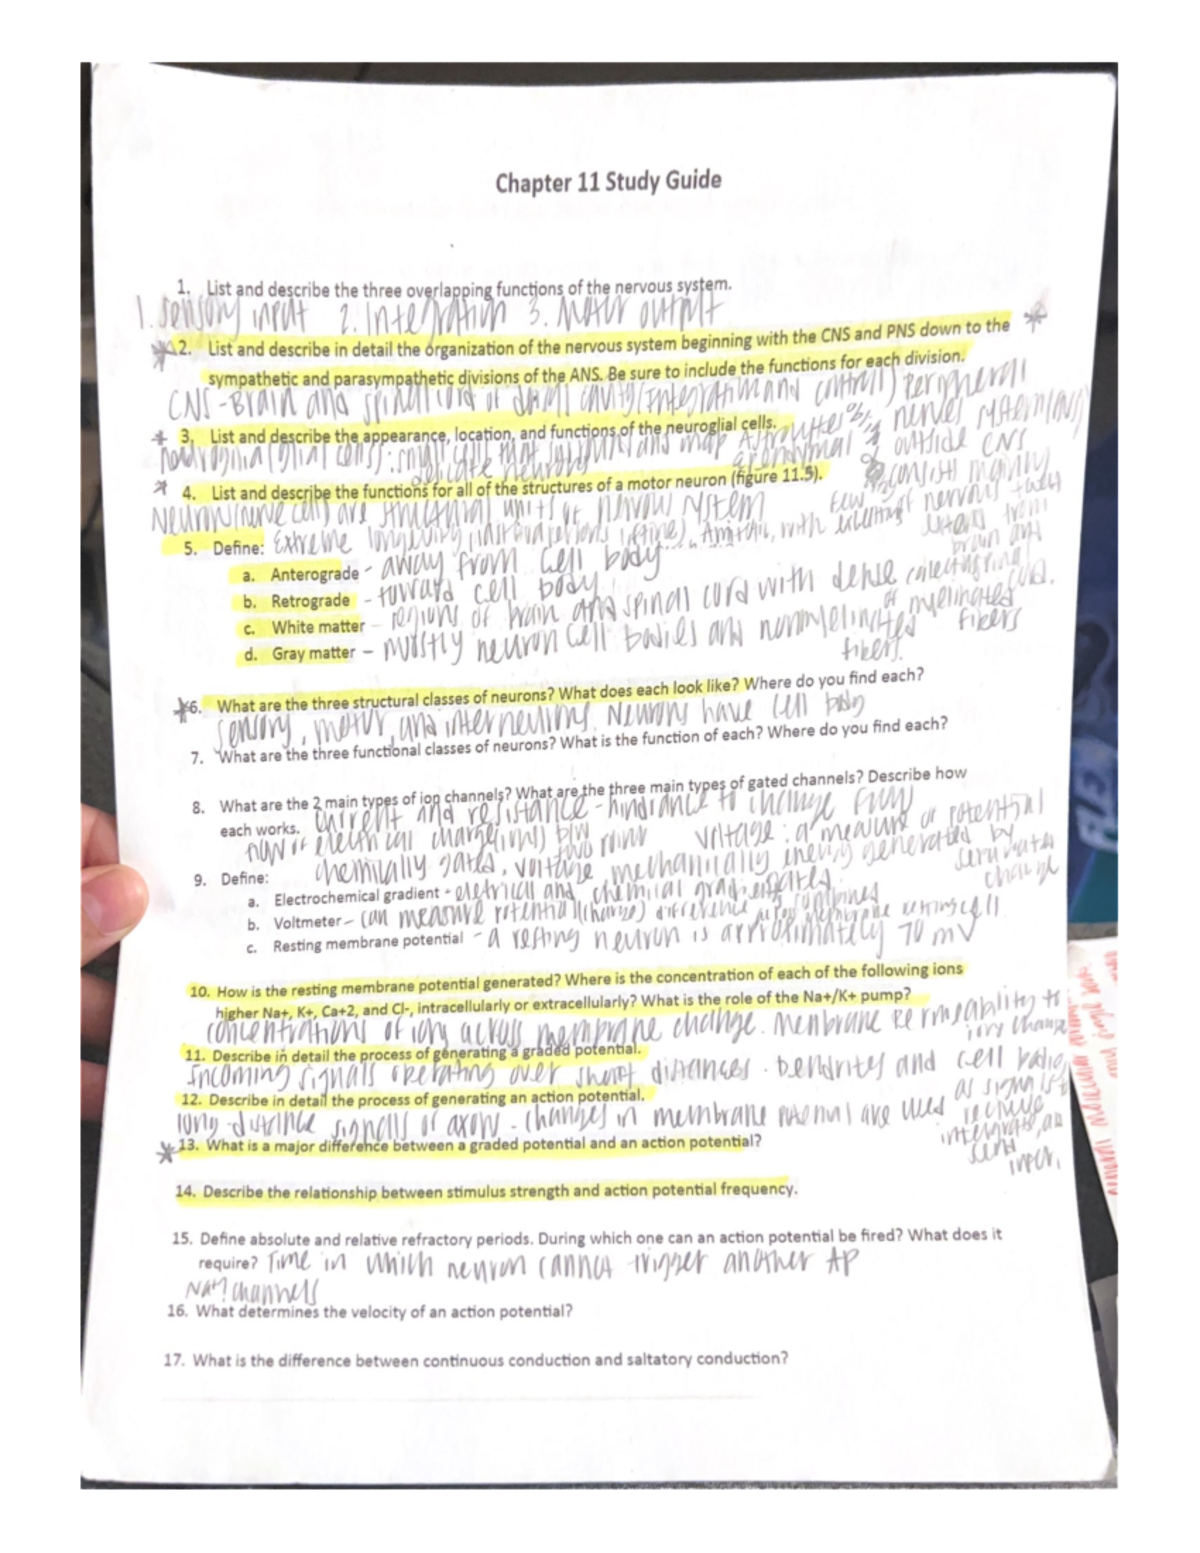 Chapter 11 Study Guide
1. List and describe the three overlapping functions of the nervous system.
1. Sensory input 2. Integration 3. Motor output
2. List and describe in detail the organization of the nervous system beginning with the CNS and PNS down to the
sympathetic and parasympathetic divisions of the ANS. Be sure to include the functions for each division.
CNS - Brain and spinal cord of dorsal cavity (Integration and control) Peripheral
nervous system (PNS)
outside CNS
consist mainly
of nerves that
extend from
brain and
spinal cord.
3. List and describe the appearance, location, and functions of the neuroglial cells.
neuroglia (glial cells): small cells that Astrocytes
delicate neurons Ependymal
4. List and describe the functions for all of the structures of a motor neuron (figure 11.5).
Neurons (nerve cells) are structural units of nervous system
5. Define: Extreme longevity Amitotic, with few exceptions
a. Anterograde - away from cell body
b. Retrograde - toward cell body
c. White matter - regions of brain and spinal cord with dense collections of myelinated fibers
d. Gray matter - mostly neuron cell bodies and nonmyelinated fibers.
6. What are the three structural classes of neurons? What does each look like? Where do you find each?
sensory, motor, and interneurons. Neurons have cell body
7. What are the three functional classes of neurons? What is the function of each? Where do you find each?
8. What are the 2 main types of ion channels? What are the three main types of gated channels? Describe how
each works. Current and resistance - hindrance to charge flow
flow of electrical charge (ions) b/w two points voltage: a measure of potential
energy generated by separated charge
chemically gated, voltage, mechanically gated.
9. Define:
a. Electrochemical gradient - electrical and chemical gradients combined
b. Voltmeter - can measure potential (charge) difference across membrane resting cell
c. Resting membrane potential - a resting neuron is approximately 70 mV
10. How is the resting membrane potential generated? Where is the concentration of each of the following ions
higher Na+, K+, Ca+2, and Cl-, intracellularly or extracellularly? What is the role of the Na+/K+ pump?
concentrations of ions across membrane change. Membrane permeability to
ions change
11. Describe in detail the process of generating a graded potential.
Incoming signals operating over short distances. Dendrites and cell bodies
12. Describe in detail the process of generating an action potential.
long-distance signals of axons - changes in membrane potential are used as signals to
receive, integrate, and send
13. What is a major difference between a graded potential and an action potential?
14. Describe the relationship between stimulus strength and action potential frequency.
15. Define absolute and relative refractory periods. During which one can an action potential be fired? What does it
require? Time in which neuron cannot trigger another AP
Na+ channels
16. What determines the velocity of an action potential?
17. What is the difference between continuous conduction and saltatory conduction?